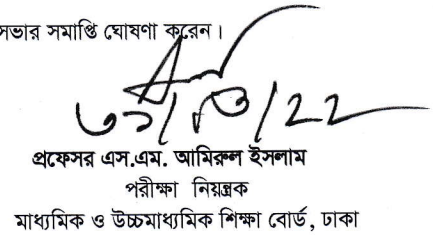 সভার সমাপ্তি ঘোষণা করেন।
৩১/০৩/22
প্রফেসর এস.এম. আমিরুল ইসলাম
পরীক্ষা নিয়ন্ত্রক
মাধ্যমিক ও উচ্চমাধ্যমিক শিক্ষা বোর্ড, ঢাকা